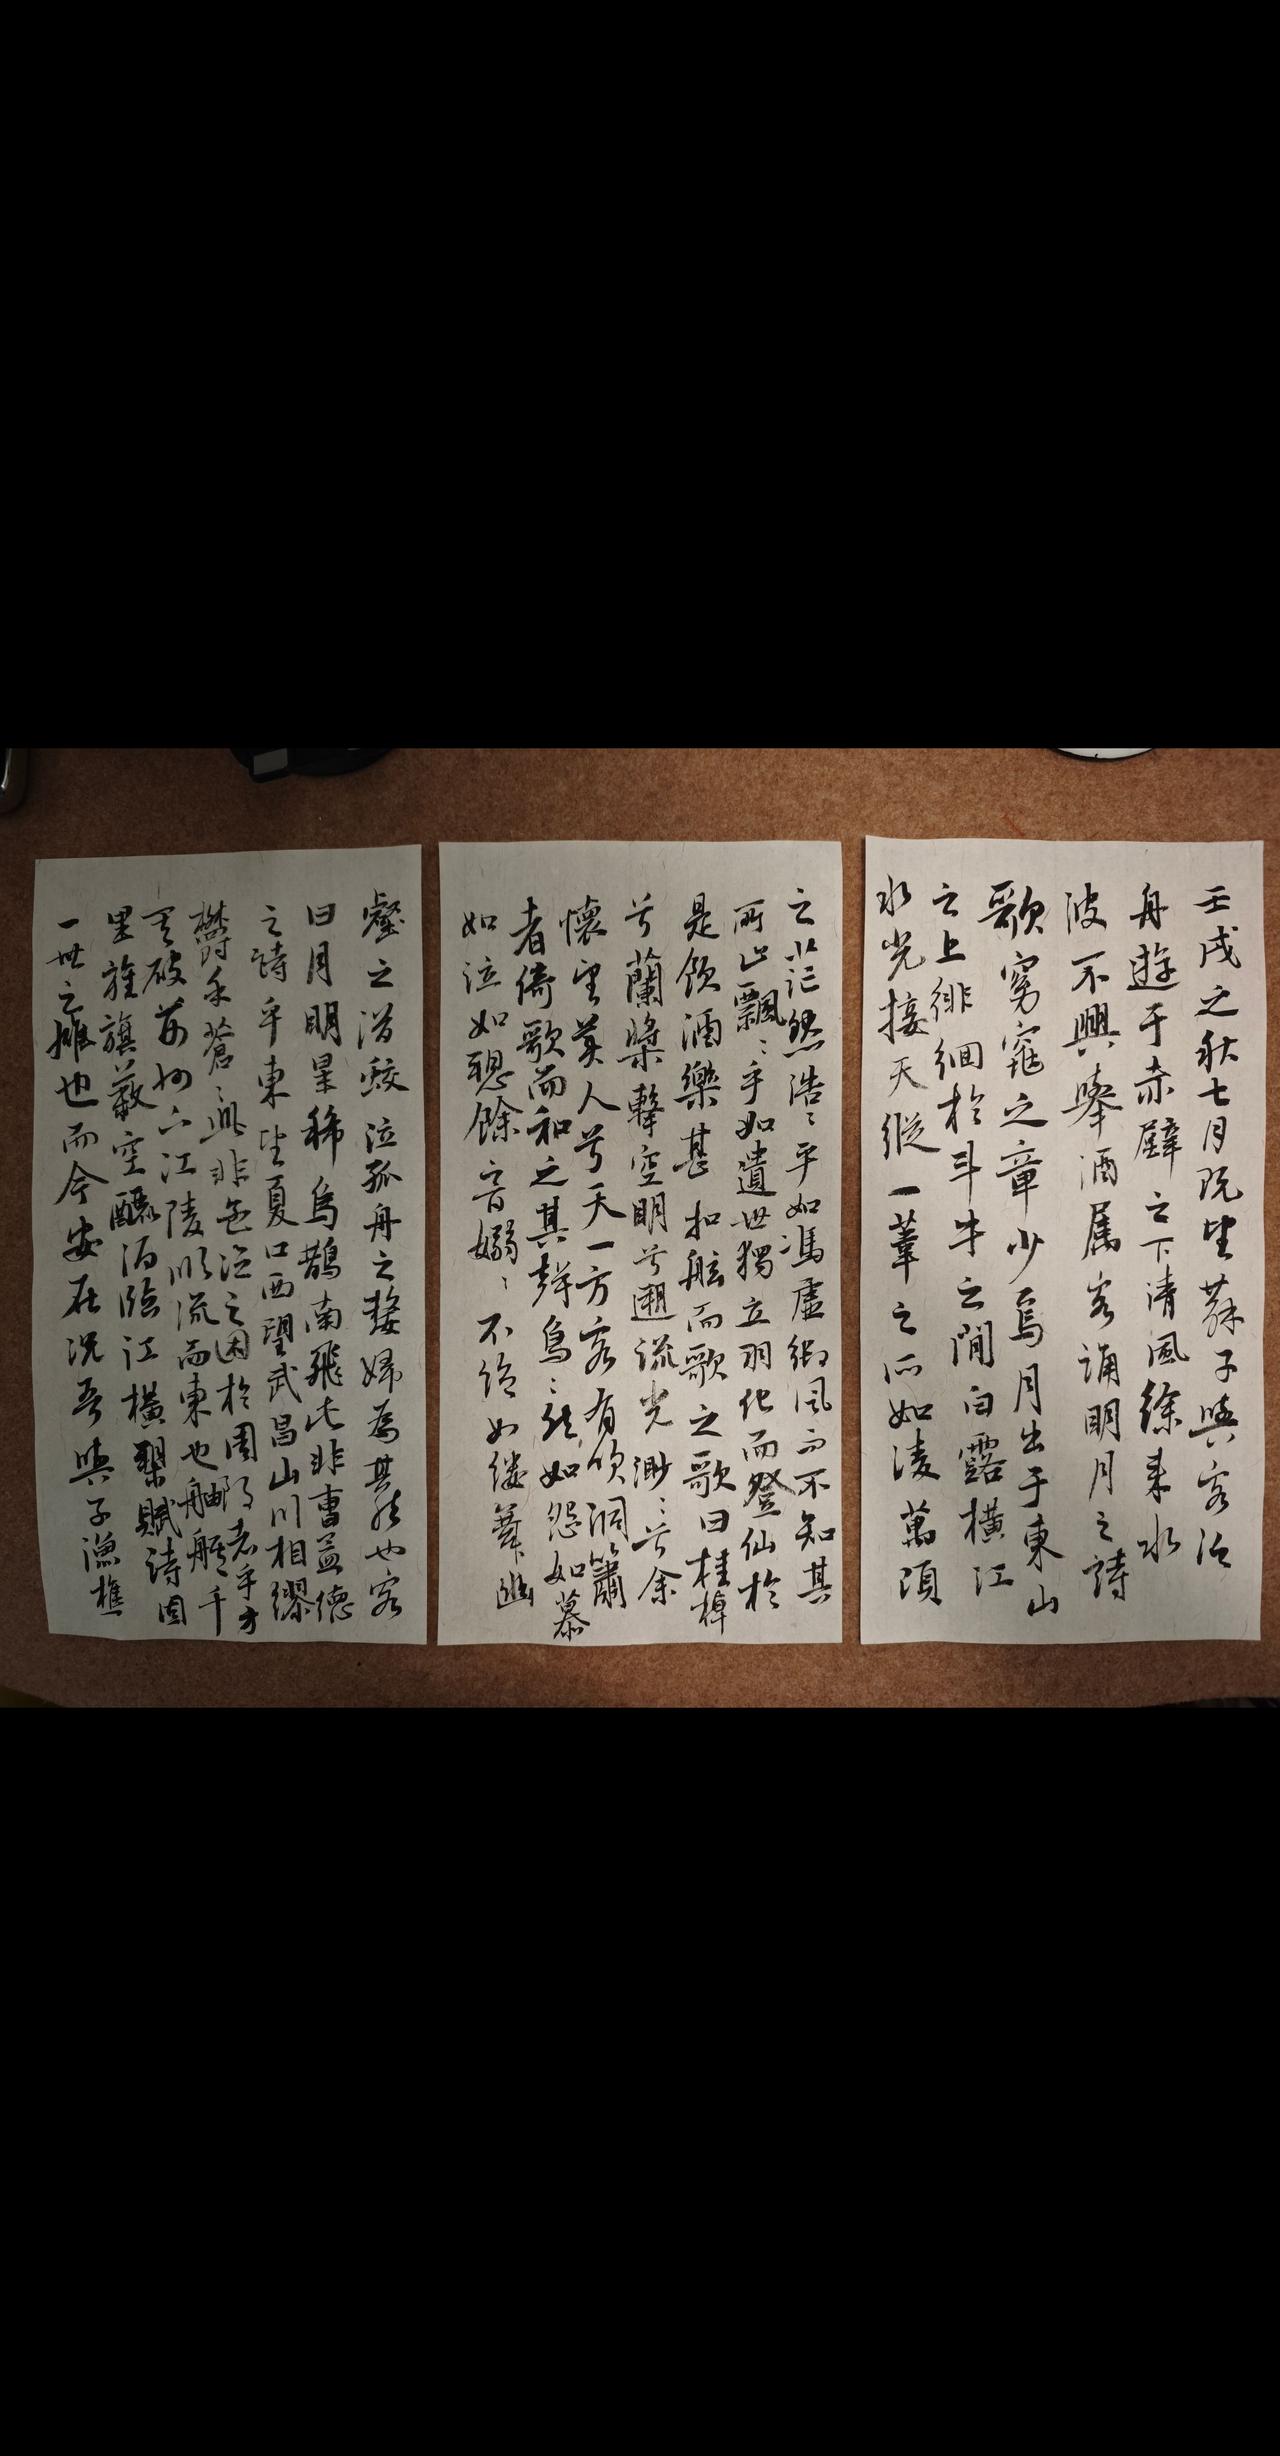 壬戌之秋七月既望蘇子與客泛
舟遊于赤壁之下清風徐來水
波不興舉酒属客誦明月之詩
歌窈窕之章少焉月出于東山
之上徘徊於斗牛之間白露橫江
水光接天縱一葦之所如凌萬頃
之茫然浩〻乎如馮虛御風而不知其
所止飄〻乎如遺世獨立羽化而登仙於
是飲酒樂甚扣舷而歌之歌曰桂棹
兮蘭槳擊空明兮遡流光渺〻兮余
懷望美人兮天一方客有吹洞簫
者倚歌而和之其聲烏〻然如怨如慕
如泣如聰餘音嫋〻不絕如縷舞幽
壑之潛蛟泣孤舟之嫠婦為其然也客
曰月明星稀烏鵲南飛此非曹孟德
之詩乎東望夏口西望武昌山川相繆
欝乎蒼〻此非
於周郎者乎方
其破荊州下江陵順流而東也舳艫千
里旌旗蔽空釃酒臨江橫槊賦詩固
一世之雄也而今安在況吾與子漁樵